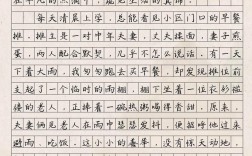 每天清晨上学，总能看见小区门口的早餐
摊。摊主是一对中年夫妻，丈夫揉面，妻子煎
蛋，两人配合默契，几乎不怎么说话。有一天
下着大雨，我匆匆跑去买早餐，却发现摊位前
支起了一个临时的雨棚，棚下坐着一位衣衫褴
褛的老人，正捧着一碗热粥喝得香甜。原来，
夫妻俩见老人在雨中瑟瑟发抖，便招呼他过来
避雨、吃饭。这小小的善举，没有惊天动地，